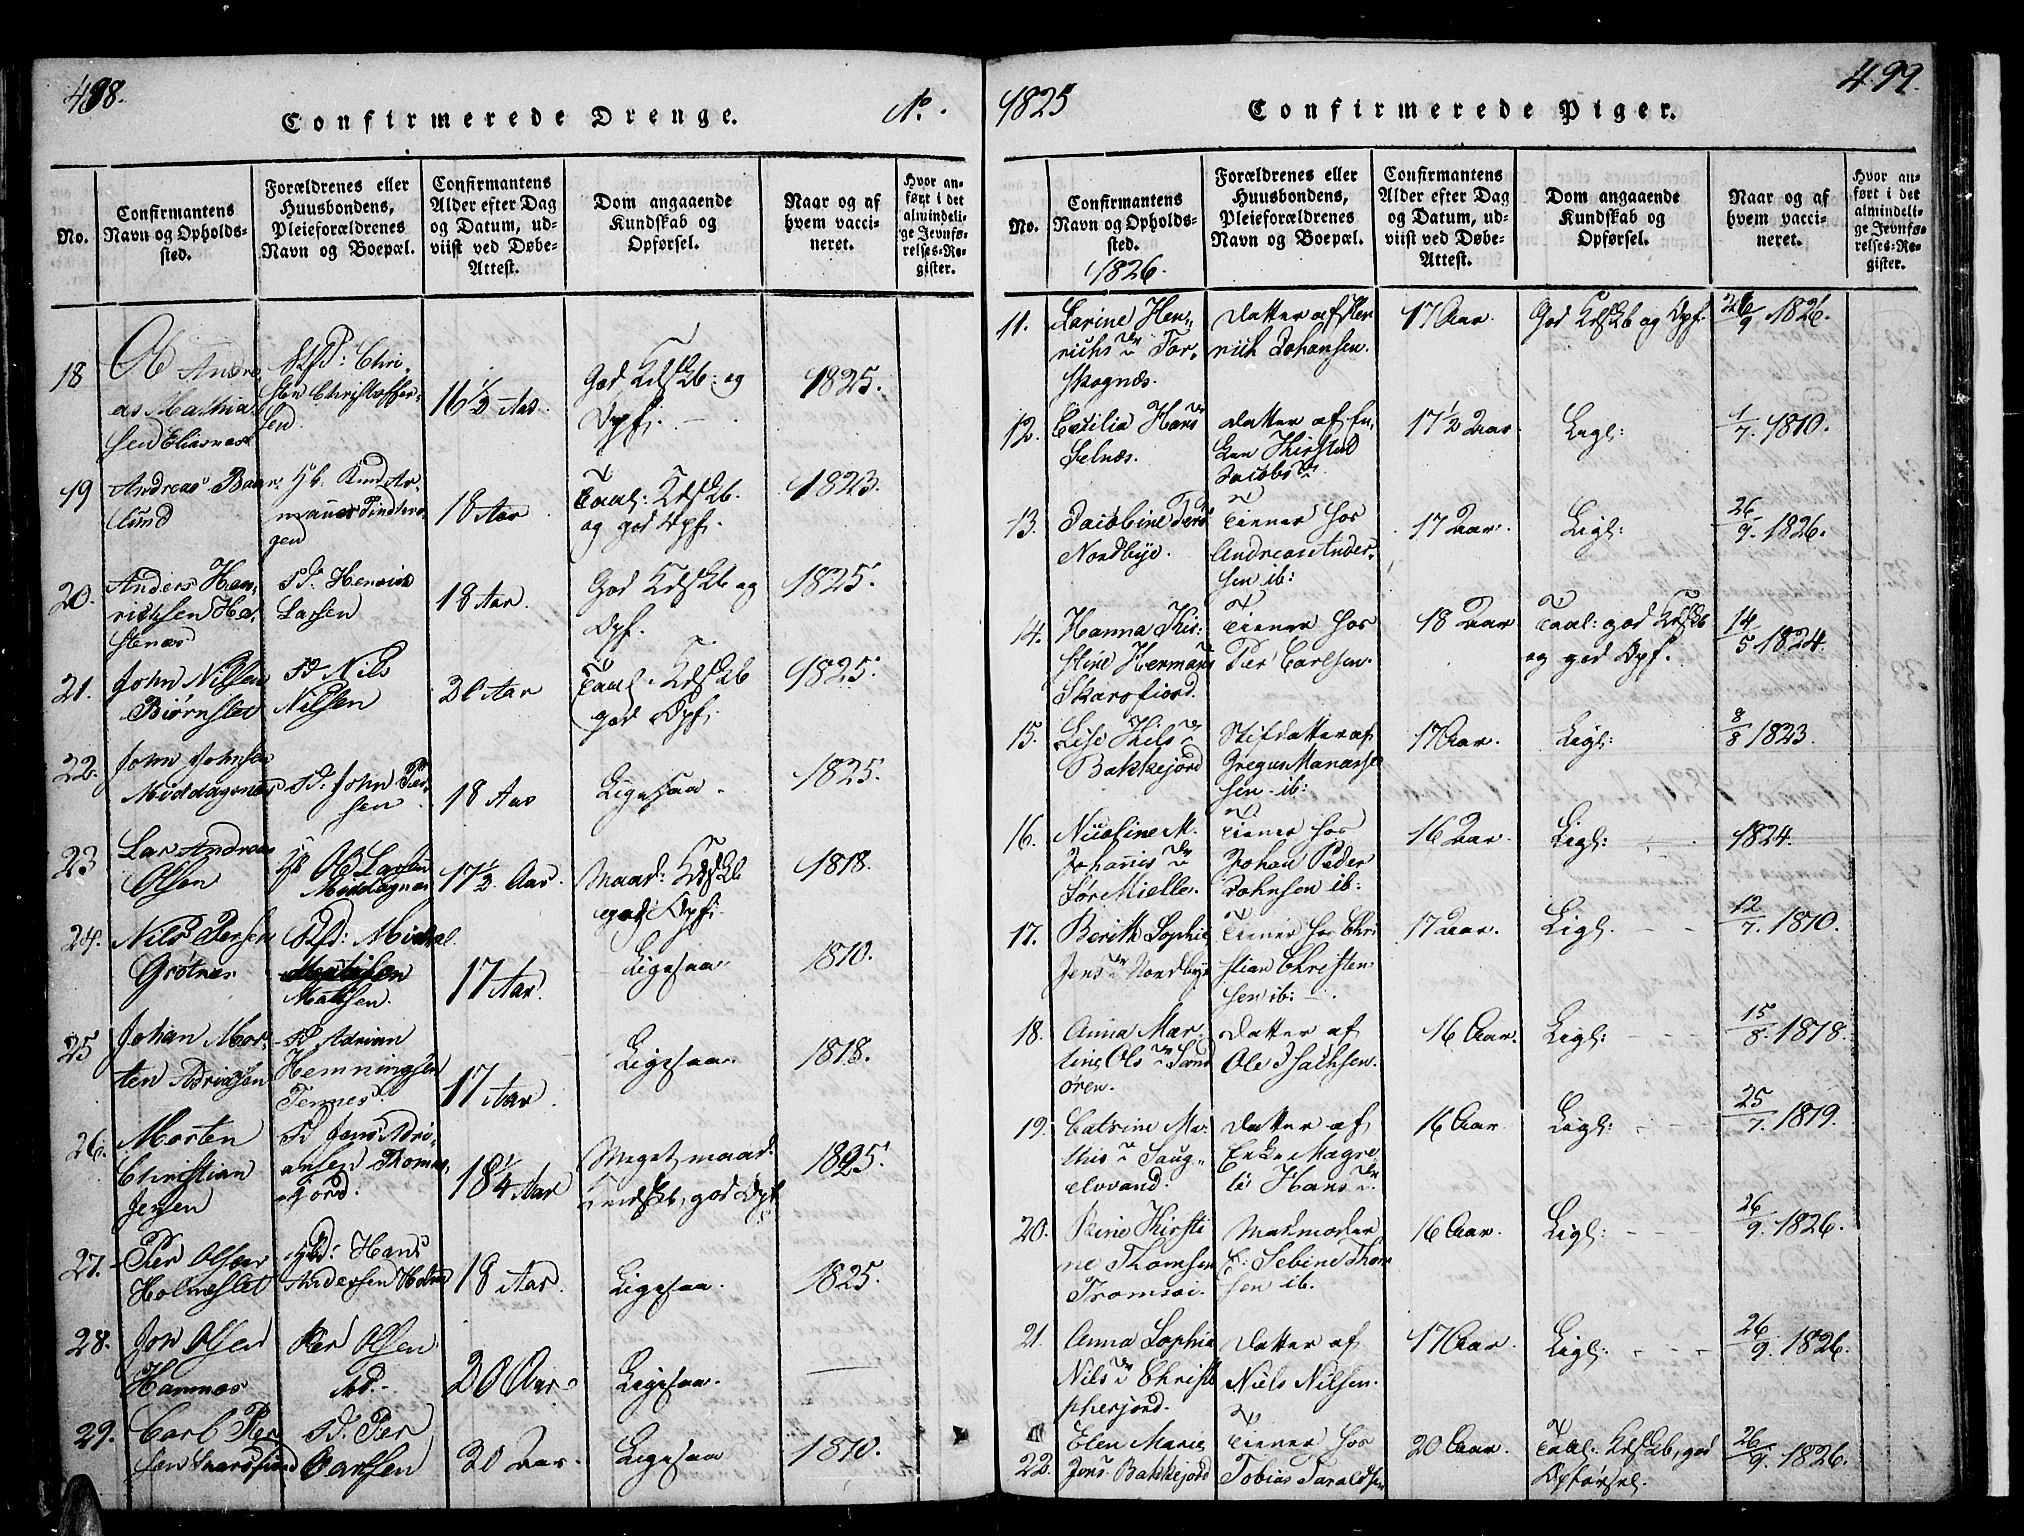 498.
Confirmerede Drenge.
No.
No.
Confirmantens
Navn og Opholds-
sted.
Forældrenes eller
Huusbondens,
Pleieforældrenes
Navn og Boepæl.
Confirmantens
Alder efter Dag
og Datum, ud-
viist ved Døbe-
Attest.
Dom angaaende
Kundskab og
Opførsel.
Naar og af
hvem vacci-
neret.
Hvor an-
ført i det
almindeli-
ge Jevnfø-
relses-Re-
gister.
18
Ole Andre
as Mathia
sen
Chri
sten Christoffer
sen
16 1/2 Aar.
God Kdskb: og
Opf:
1825.
19
Andreas
18 Aar
Taal: Kdskb.
og god Opf:
1823.
20.
Anders Hen,
richsen
Henrich
Larsen
18 Aar.
God Kdskb og
Opf.
1825.
21.
John Nilsen
Biørnslet
Nils
Nilsen
20 Aar
Taal. Kdskb
god Opf:
1825.
22.
John Johnsen
Middagsnæs
John Per
sen
18 Aar
Ligesaa.
1825.
23
Lars Andreas
Olsen
Ole Larsen
Middagnæs
17 1/2 Aar.
Maad: Kdskb
god Opf:
1818.
24.
Nils Persen
Grøtnæs
Michal
Mattsen.
17 Aar.
Ligesaa
1810.
25
Johan Mor-
ten Adriansen
Adrian
Hemningsen
Tennes.
17 Aar.
Ligesaa.
1818.
26.
Morten
Christian
Jensen
Jens Adri-
ansen Thomas-
jord.
18 1/4 Aar
Meget maad:
Kundskb, god Opf.
1825.
27.
Per Olsen
Holmeslet
Hans
Andersen
18 Aar.
Ligesaa.
1825.
28.
Jon Olsen
Hamnæs
Per Olsen
20 Aar.
Ligesaa.
29.
Carl Per
sen
Per
Carlsen
20 Aar.
Ligesaa
1810.
1825
Confirmerede Piger.
499.
No.
Confirmantens
Navn og Opholds-
sted.
1826.
Forældrenes eller
Huusbondens,
Pleieforældrenes
Navn og Boepæl.
Confirmantens
Alder efter Dag
og Datum, ud-
viist ved Døbe-
Attest.
Dom angaaende
Kundskab og
Opførsel.
Naar og af
hvem vacci-
neret.
Hvor an-
ført i det
almindeli-
ge Jevnfø-
relses-Re-
gister.
11.
Karine Hen-
richsdr Tor-
skognæs.
Datter af Hen
rich Johansen.
17 Aar.
God Kdskb og Opf.
26/9 1826.
12.
Cecilia Hans
Selnæs.
Datter af En,
ken Kirstad
Jacobsdr
17 1/2 Aar
Ligl:
1/7. 1810.
13.
Jacobine Pers
Nordbye.
Tiener hos
Andreas Ander-
sen ib:
17 Aar.
Ligl:
26/9. 1826.
14.
Hanna Kir-
stine Hermans
Skarsfiord.
Tiener hos
Per Carlsen.
18 Aar
Taal: god Kdskb
og god Opf.
14/5 1824.
15.
Lise Nilsdr
Bakkejord
Stifdatter af
Gregus Manasse
sen ib:
17 Aar.
Ligl:
8/8 1823.
16.
Nicoline M.
Johannisdr
Sør Mielle.
Tiener hos
Johan Peder
Johnsen ib:
16 Aar
Ligl:
1824.
17.
Berith Sophie
Jensdr Nordbye
Tiener hos Chri
stian Christen-
sen ib:
17 Aar.
Ligl.
12/7. 1810.
18.
Anna Mar-
tine Olsdr Sand
øren.
Datter af
Ole Isachsen.
16 Aar.
Ligl:
15/8. 1818.
19.
Catrine Ma-
thisdr Saug-
elvvand.
Datter af
Enke Magre-
te Hansdr.
16 Aar.
Ligl:
25/7. 1819.
20.
Kirsti
ne Thomsen
Tromsøi.
Madmoder
E: Sebine Thom
sen ib.
16 Aar.
Ligl:
26/9. 1826.
21.
Anna Sophia
Nilsdr Christo
pherjord.
Datter af
Niels Nilsen.
17 Aar.
Ligl:
26/9. 1826.
22.
Elen Marie
Jens Bakkejord
Tiener hos
Tobias Taraldsen
20 Aar.
Taal: Kdskb, god
Opførsel.
26/9. 1826.